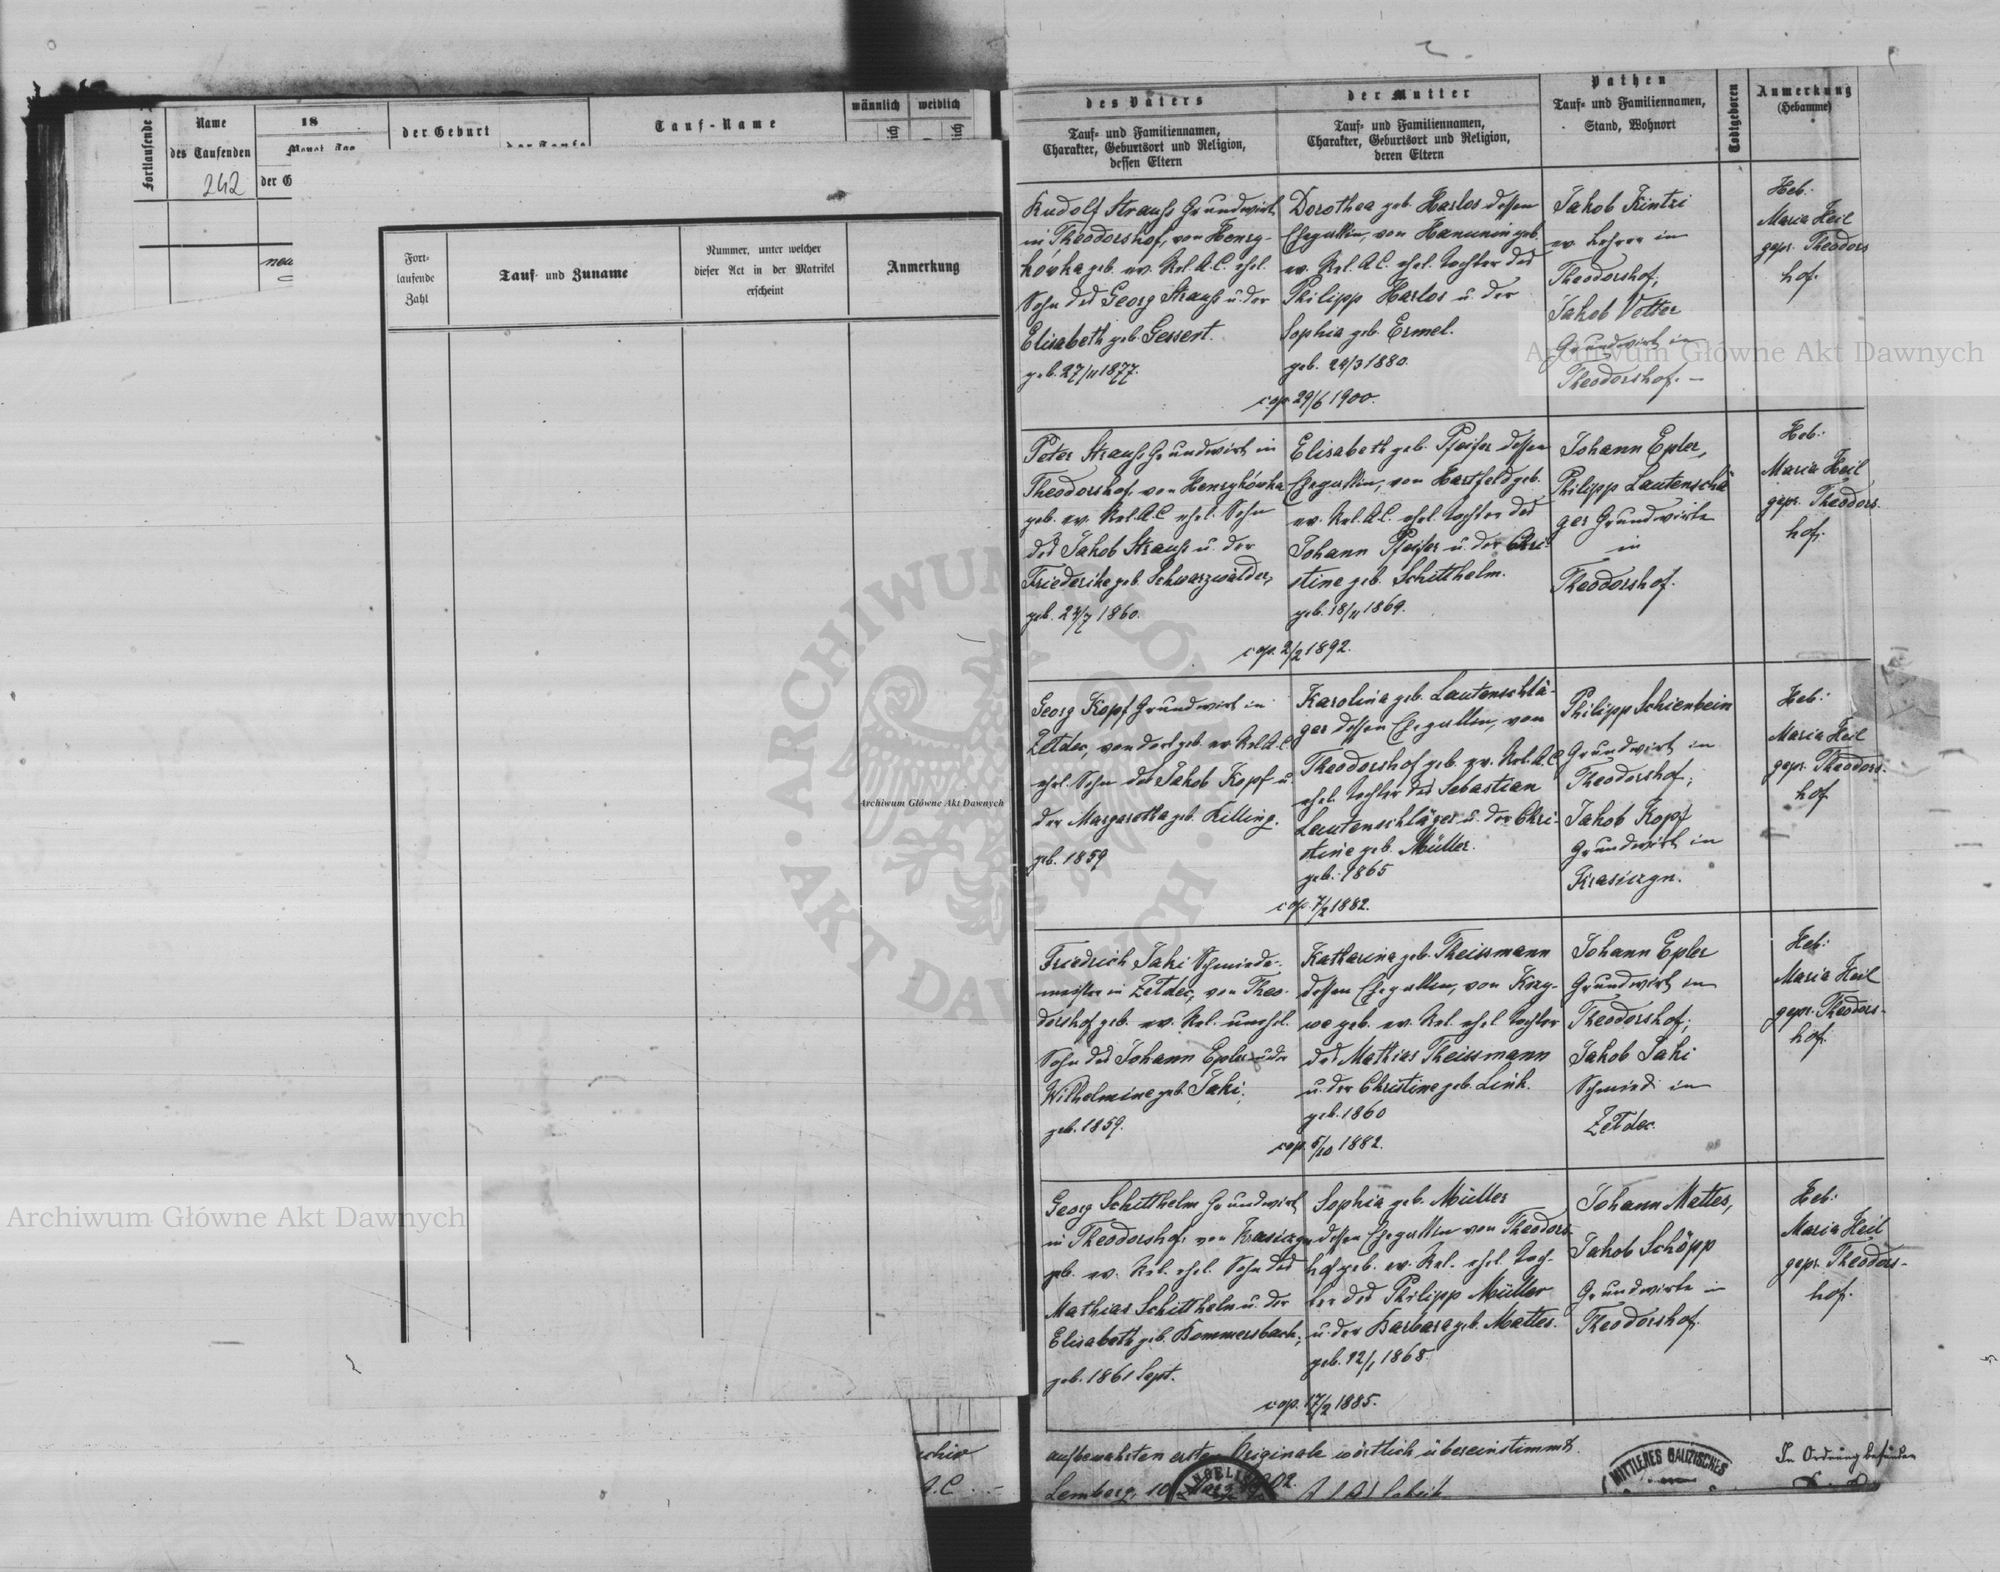 Fortlaufende
Name
des Taufenden
242
18
Monat, Tag
der G
der Geburt
der Taufe
Tauf-Name
männlich
weiblich
Fort-
laufende
Zahl
Tauf- und Zuname
Nummer, unter welcher
dieser Act in der Matrikel
erscheint
Anmerkung
des Vaters
Tauf- und Familiennamen,
Charakter, Geburtsort und Religion,
dessen Eltern
der Mutter
Tauf- und Familiennamen,
Charakter, Geburtsort und Religion,
deren Eltern
Pathen
Tauf- und Familiennamen,
Stand, Wohnort
Todtgeboren
Anmerkung
(Hebamme)
Rudolf Strauß Grundwirt
in Theodorshof, von Henry-
kówka geb. ev. Rel. A.C. ehel.
Sohn des Georg Strauß u. der
Elisabeth geb. Gessert.
geb. 27/11 1877.
Dorothea geb. Harlos dessen
Ehegattin, von Hanunin geb.
ev. Rel. A.C. ehel. Tochter des
Philipp Harlos u. der
Sophia geb. Ermel.
geb. 24/3 1880.
cop. 29/6 1900.
Jakob Kintzi
ev. Lehrer in
Theodorshof;
Jakob Vetter
Grundwirt in
Theodorshof. –
Heb:
Maria Heil
gepr. Theodors
hof.
Peter Strauß Grundwirt in
Theodorshof, von Henrykówka
geb. ev. Rel. A.C. ehel. Sohn
des Jakob Strauß u. der
Friederike geb. Schwarzwälder,
geb. 23/7 1860.
Elisabeth geb. Pfeifer dessen
Ehegattin, von Hartfeld geb.
ev. Rel. A.C. ehel. Tochter des
Johann Pfeifer u. der Chri-
stine geb. Schitthelm.
geb. 18/11 1869.
cop. 2/2 1892.
Johann Epler,
Philipp Lautenschlä
ger Grundwirte
in
Theodorshof.
Heb:
Maria Heil
gepr. Theodors.
hof.
Georg Kopf Grundwirt in
Zeldec, von dort geb. ev. Rel. A.C.
ehel. Sohn des Jakob Kopf u.
der Margaretha geb. Killing.
geb. 1859
Karolina geb. Lautenschlä-
ger dessen Ehegattin, von
Theodorshof geb. ev. Rel. A.C.
ehel. Tochter des Sebastian
Lautenschläger u. der Chri-
stine geb. Müller.
geb. 1865
cop. 7/2 1882.
Philipp Schienbein
Grundwirt in
Theodorshof;
Jakob Kopf
Grundwirt in
Krasiczyn.
Heb:
Maria Heil
gepr. Theodors-
hof.
Friedrich Jaki Schmiede-
meister in Zeldec, von Theo-
dorshof geb. ev. Rel. unehel.
Sohn des Johann Epler u der
Wilhelmine geb. Jaki;
geb. 1859.
Katharina geb. Theissmann
dessen Ehegattin, von Krzy-
we geb. ev. Rel. ehel Tochter
des Mathias Theissmann
u. der Christine geb. Link.
geb. 1860
cop. 5/10 1882.
Johann Epler
Grundwirt in
Theodorshof;
Jakob Jaki
Schmied in
Zeldec.
Heb:
Maria Heil
gepr. Theodors-
hof.
Georg Schitthelm Grundwirt
in Theodorshof, von Krasiczyn
geb. ev. Rel. ehel. Sohn des
Mathias Schitthelm u. der
Elisabeth geb. Bommersbach;
geb. 1861 Sept.
Sophia geb. Müller
dessen Ehegattin von Theodors-
hof geb. ev. Rel. ehel. Toch-
ter des Philipp Müller
u. der Barbara geb. Mattes.
geb. 12/1 1868.
cop. 17/2 1885.
Johann Mattes,
Jakob Schöpp
Grundwirte in
Theodorshof.
Heb:
Maria Heil
gepr. Theodors-
hof.
A.C.
aufbewahrten Originale wörtlich übereinstimmt.
Lemberg, 10
MITTLERES GALIZISCHES
In Ordnung befunden
Archiwum Główne Akt Dawnych
Archiwum Główne Akt Dawnych
Archiwum Główne Akt Dawnych
ARCHIWUM GŁÓWNE AKT DAWNYCH